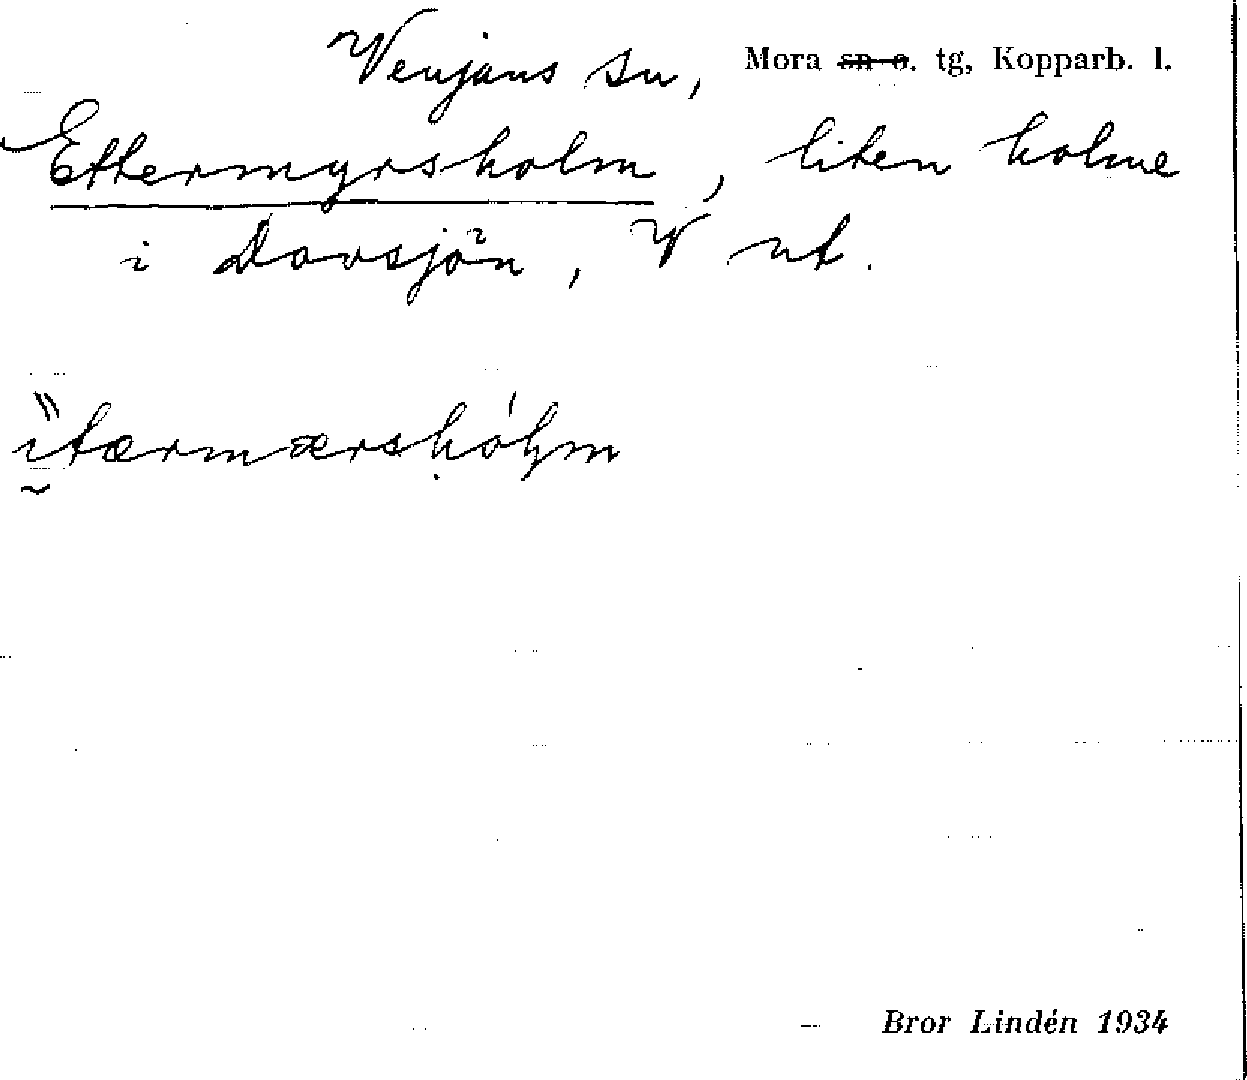 Venjans sn, Mora sn o. tg, Kopparb. l.
Ettermyrsholm, liten holme
i Dovsjön, V ut.
ìtærmærshòl̥m
Bror Lindén 1934